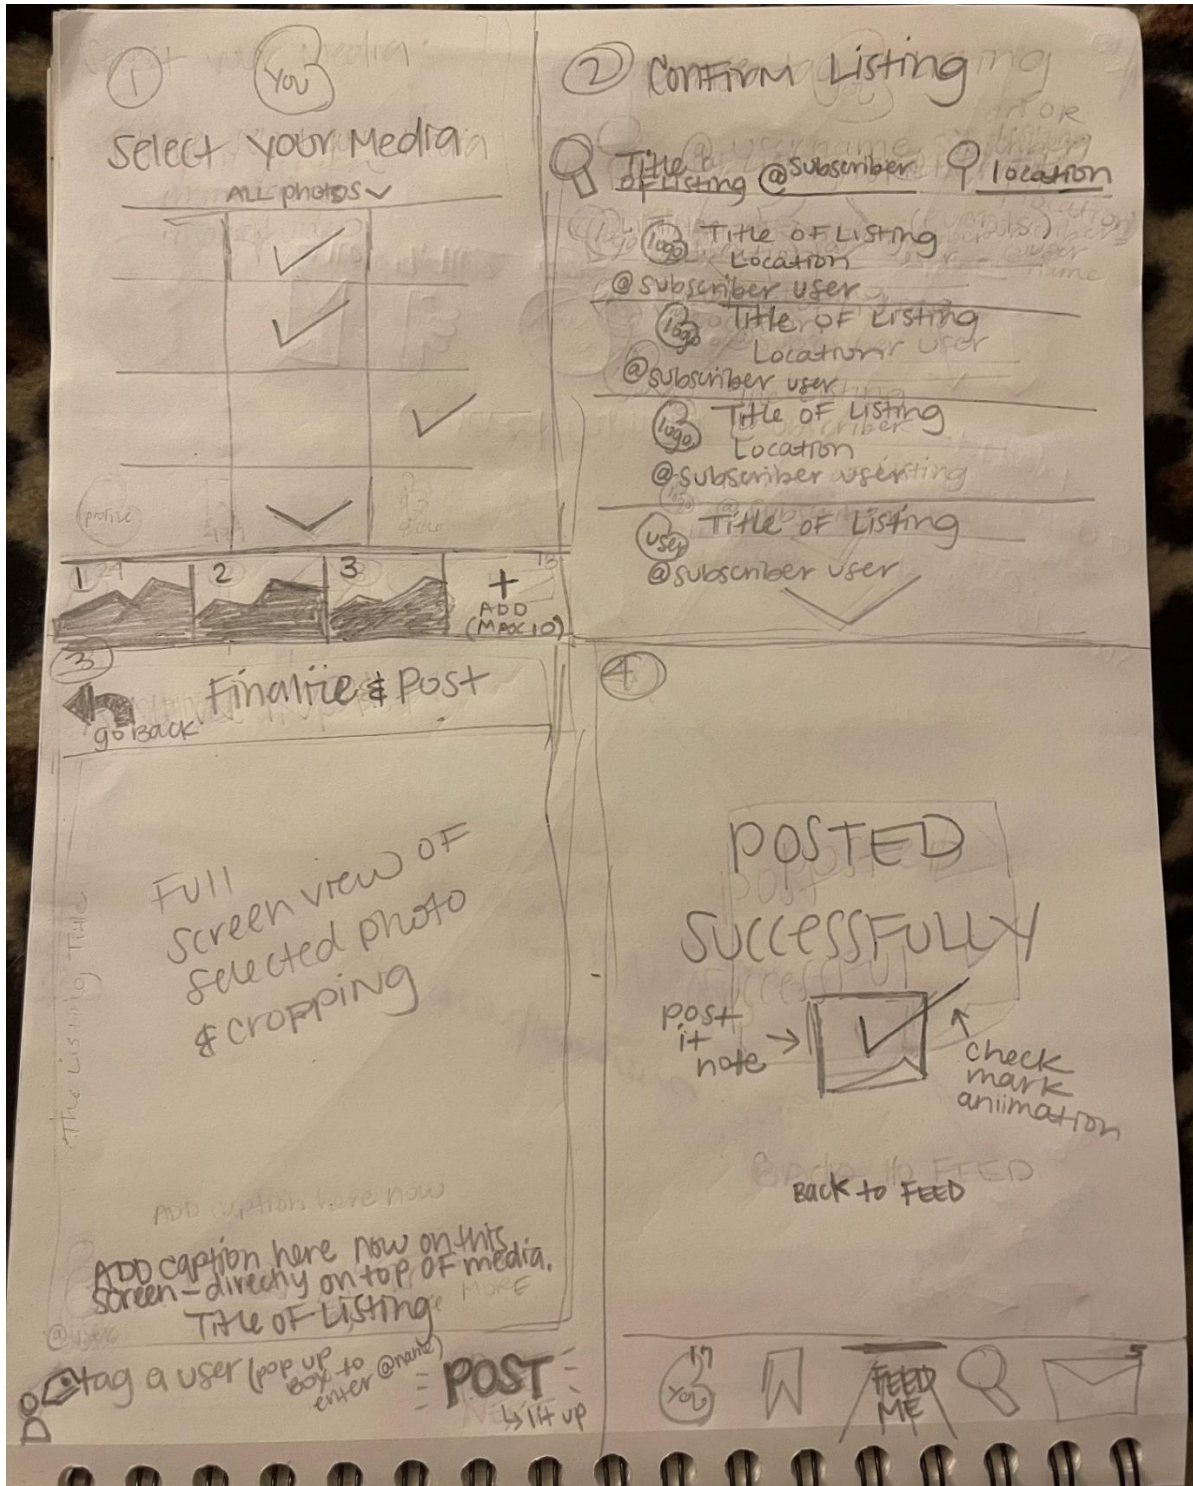 1
YOU
Select your Media
ALL photos
profile
1
2
3
+
ADD
(MAX 10)
2
Confirm Listing
Title
of Listing
@subscriber
location
logo
Title of Listing
Location
@subscriber user
logo
Title of Listing
Location
@subscriber user
logo
Title of Listing
Location
@subscriber user
user
Title of Listing
@subscriber user
3
go Back
Finalize & Post
Full
screen view of
selected photo
& cropping
The Listing Title
ADD caption here now
ADD caption here now on this
screen - directly on top of media.
Title of Listing
MORE
tag a user (pop up
Box to
enter @name)
POST
↳ lit up
4
POSTED
SUCCESSFULLY
post
it
note →
check
mark
aniimation
Back to FEED
Back to FEED
YOU
17
FEED
ME
5